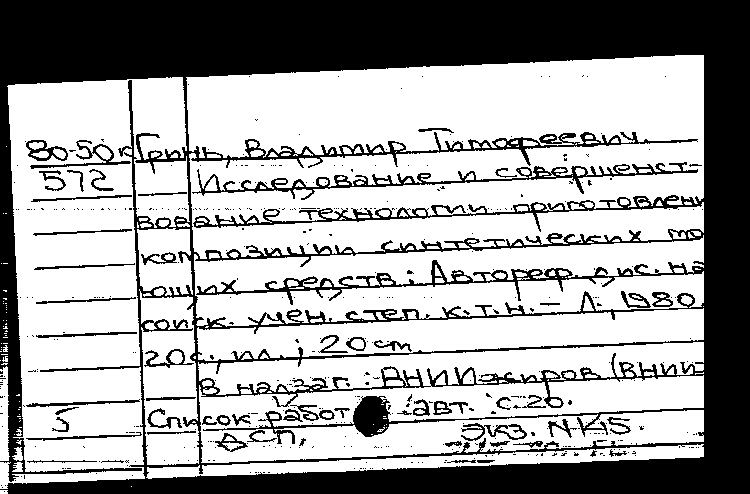 80-50к Гринь, Владимир Тимофеевич.
572 Исследование и совершенст-
вование технологии приготовлени
композиции синтетических мо
ющих средств: Автореф. дис. на
соиск. учен. степ. к.т.н. – Л., 1980.
20с., ил.; 20 см.
В надзаг.: ВНИИжиров (ВНИИ-
5 Список работ авт.: с.20.
ДСП, Экз. N